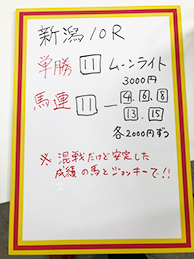 新潟10R
単勝 11 ムーンライト
3000円
馬連 11 ― 4.6.8
13.15
各2000円ずつ
※混戦だけど安定した
成績の馬とジョッキーで!!